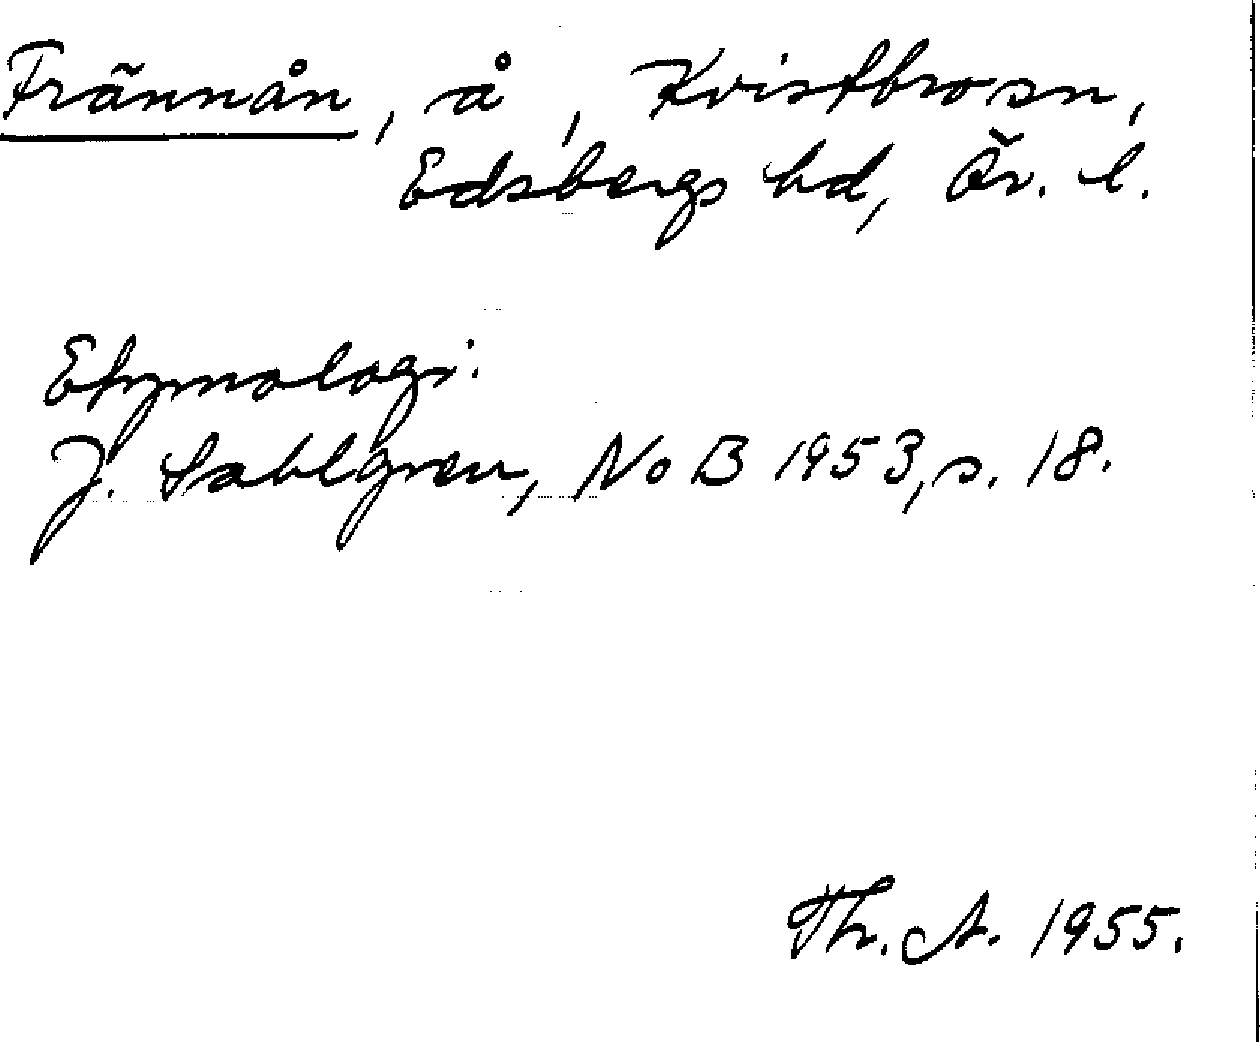 Frännån, å, Kvistbro sn,
Edsbergs hd, Ör. l.
Etymologi:
J. Sahlgren, NoB 1953, s. 18.
Th. A. 1955.